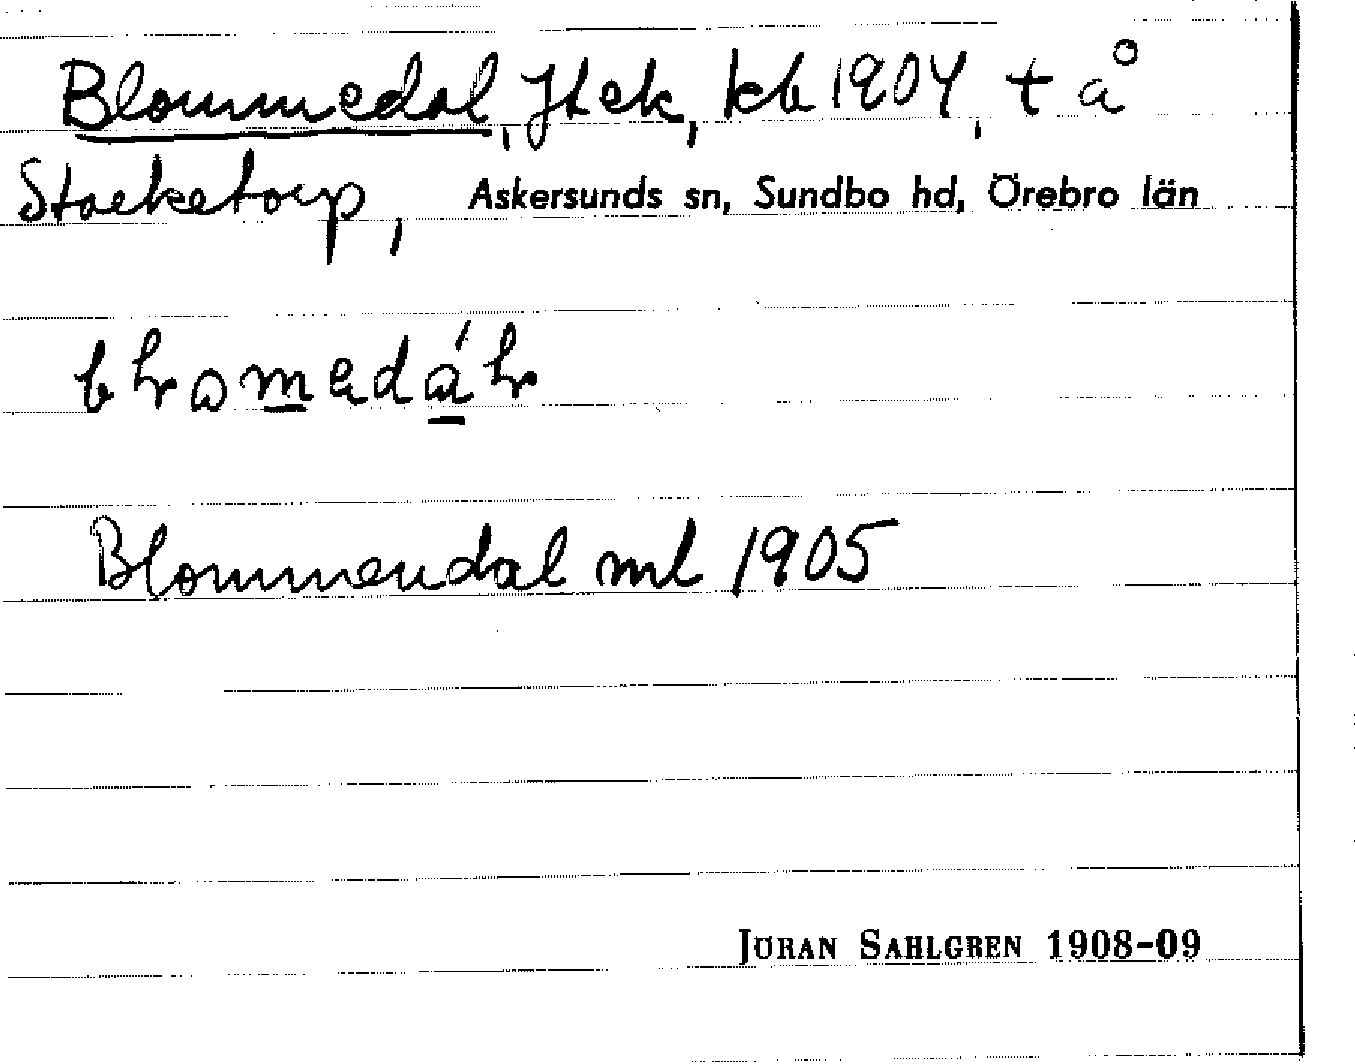 Blommedal, Jtek, kb 1904, t å
Stocketorp, Askersunds sn, Sundbo hd, Örebro län
Blommendal ml 1905
JÖRAN SAHLGREN 1908-09